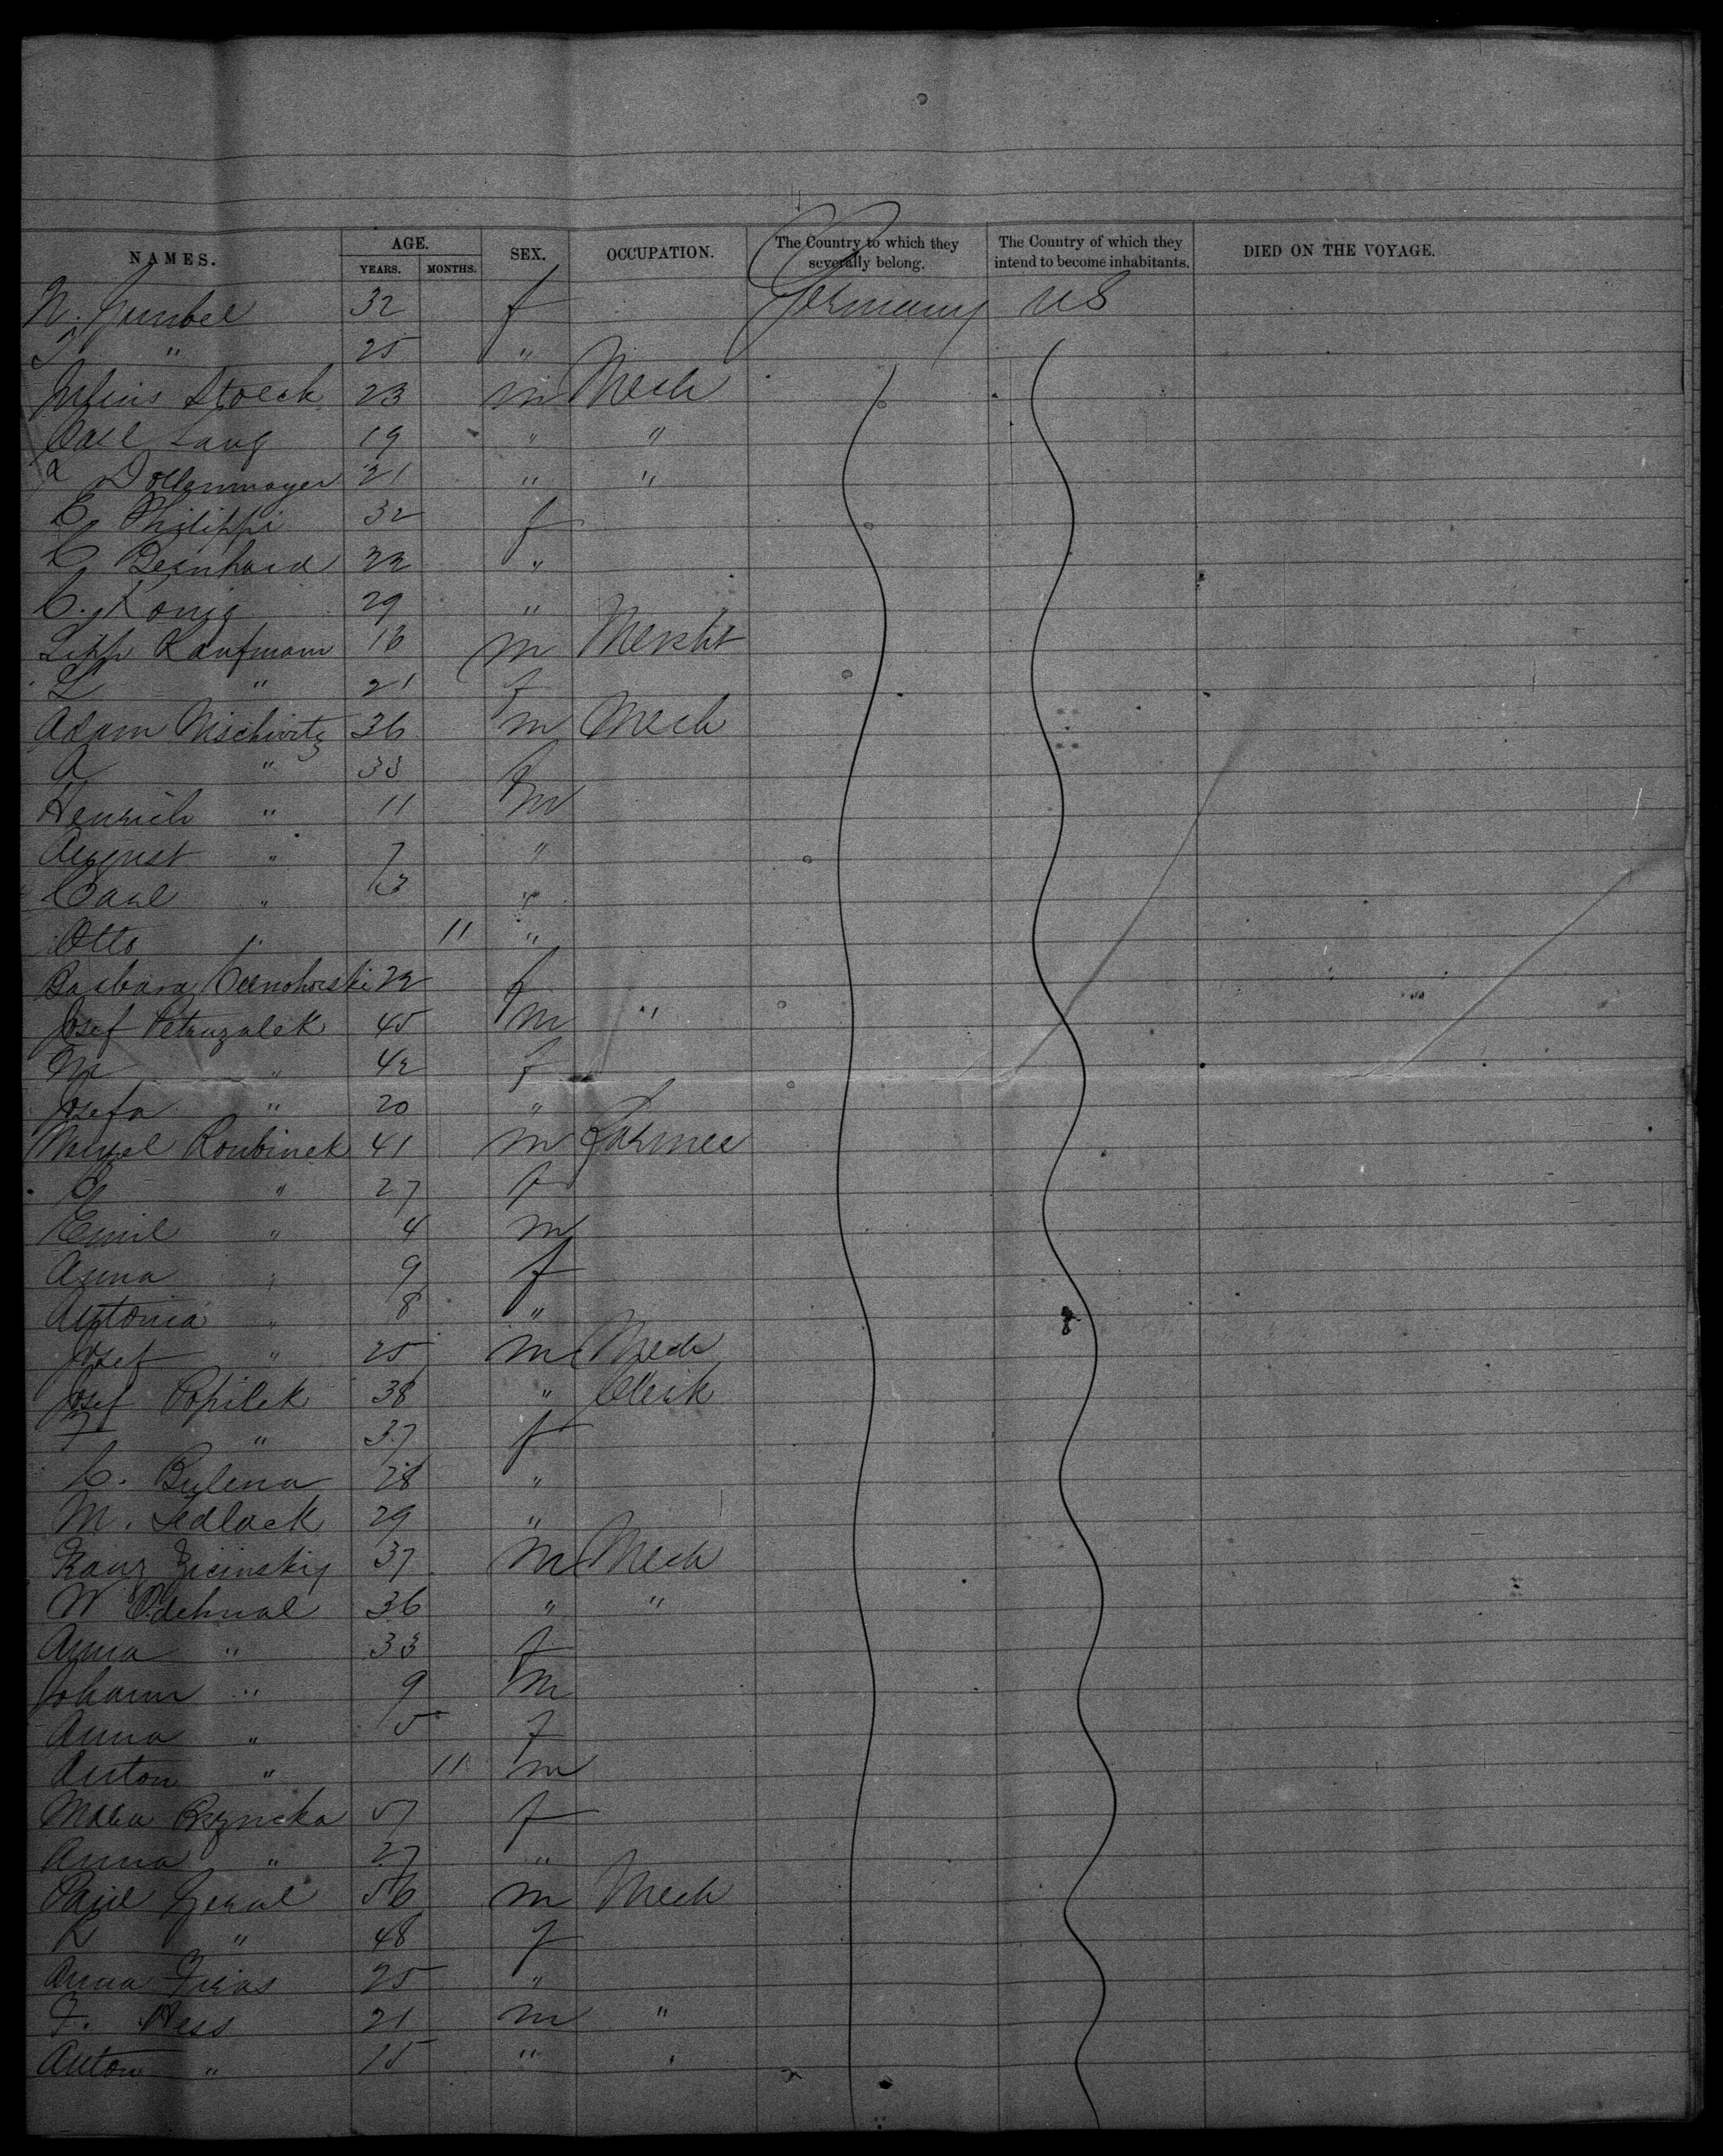 NAMES. AGE. YEARS. MONTHS. SEX. OCCUPATION. The Country to which they severally belong. The Country of which they intend to become inhabitants. DIED ON THE VOYAGE.
N. Gumbel 32 f Germany US
" 25 "
Julius Stoeck 23 m Mech
Carl Lang 19 " "
A Dollenmayer 21 " "
C. Philippi 32 f
C. Bernhard 22 "
C. Konig 29 "
Lipp Kaufmann 16 m Mercht
L " 21 f
Adam Nischwitz 36 m Mech
A " 33 f
Heinrich " 11 m
August " 7 "
Carl " 3 "
Otto " 11 "
Barbara Cernohorski 22 f
Josef Petruzalek 45 m "
M " 42 f
Josefa " 20 "
Roubinek 41 m Farmer
" 27 f
Emil " 4 m
Anna " 9 f
Antonia " 8 "
Josef " 25 m Mech
Josef Popilek 38 " Clerk
F " 37 f
C. Bylina 28 "
M. Sedlack 29 "
Franz Zicinsky 37 m Mech
W Odehnal 36 " "
Anna " 33 f
Johann " 9 m
Anna " 5 f
Anton " 11 m
Maria 57 f
Anna " 27 "
Paul Geral 56 m Mech
" 48 f
Anna Firas 25 "
F. Hess 21 m "
Anton " 15 " "